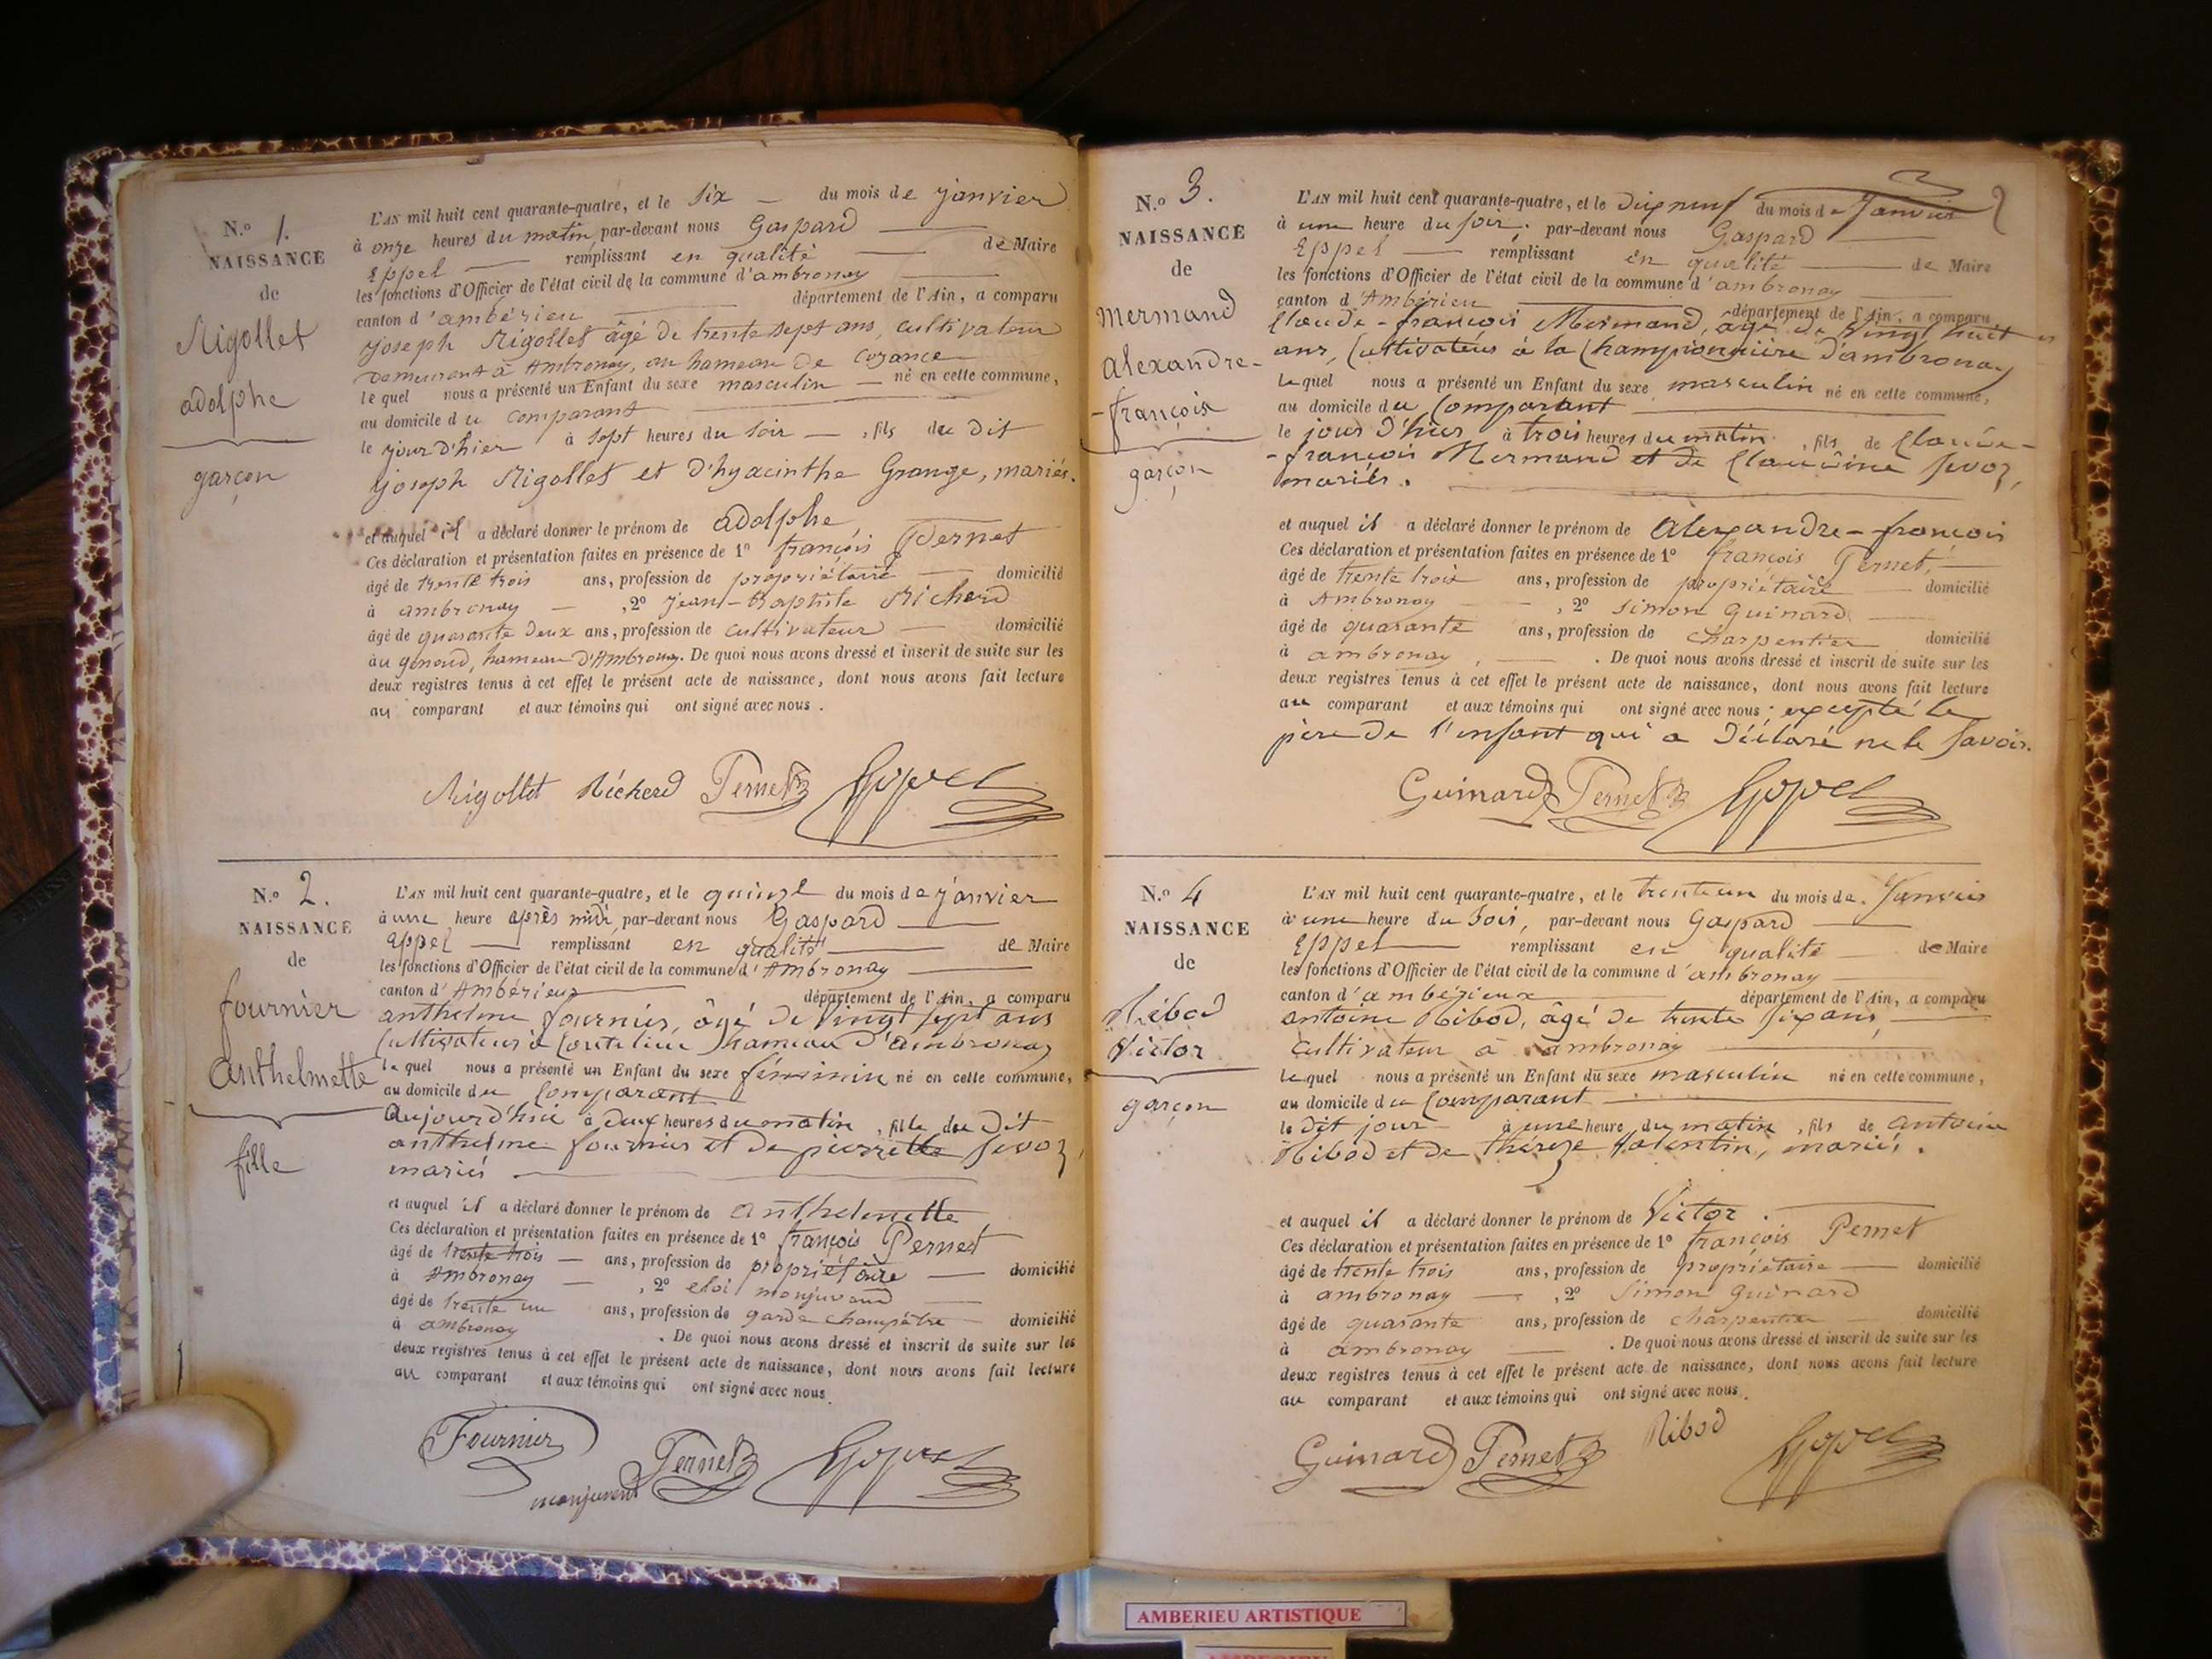 N.o 1.
NAISSANCE
de
Rigollet
adolphe
garçon
L'AN mil huit cent quarante-quatre, et le six du mois de janvier
à onze heures du matin, par-devant nous Gaspard
Eppel remplissant en qualité de Maire
les fonctions d'Officier de l'état civil de la commune d'ambronay
canton d'ambérieu département de l'Ain, a comparu
joseph Rigollet âgé de trente sept ans, cultivateur
demeurant à Ambronay, au hameau de Coyance
lequel nous a présenté un Enfant du sexe masculin né en cette commune,
au domicile du comparant
le jour d'hier à sept heures du soir, fils du dit
joseph Rigollet et d'hyacinthe Grange, mariés.
et auquel il a déclaré donner le prénom de adolphe
Ces déclaration et présentation faites en présence de 1o françois Pernet
âgé de trente trois ans, profession de propriétaire domicilié
à ambronay, 2o jean-Baptiste Richerd
âgé de quarante deux ans, profession de cultivateur domicilié
au genoud, hameau d'Ambronay. De quoi nous avons dressé et inscrit de suite sur les
deux registres tenus à cet effet le présent acte de naissance, dont nous avons fait lecture
au comparant et aux témoins qui ont signé avec nous.
Rigollet Richerd Pernet Eppel
N.o 2.
NAISSANCE
de
fournier
anthelmette
fille
L'AN mil huit cent quarante-quatre, et le quinze du mois de janvier
à une heure après midi, par-devant nous Gaspard
Eppel remplissant en qualité de Maire
les fonctions d'Officier de l'état civil de la commune d'Ambronay
canton d'Ambérieux département de l'Ain, a comparu
anthelme fournier, âgé de vingt sept ans
Cultivateur à hameau d'ambronay
lequel nous a présenté un Enfant du sexe féminin né en cette commune,
au domicile du Comparant
aujourd'hui à deux heures du matin, fille du dit
anthelme fournier et de pierrette Sevoz,
mariés
et auquel il a déclaré donner le prénom de anthelmette
Ces déclaration et présentation faites en présence de 1o françois Pernet
âgé de trente trois ans, profession de propriétaire domicilié
à Ambronay, 2o eloi monjuvend
âgé de trente un ans, profession de garde champêtre domicilié
à ambronay. De quoi nous avons dressé et inscrit de suite sur les
deux registres tenus à cet effet le présent acte de naissance, dont nous avons fait lecture
au comparant et aux témoins qui ont signé avec nous.
Fournier monjuvend Pernet Eppel
N.o 3.
NAISSANCE
de
Mermand
Alexandre-
-françois
garçon
L'AN mil huit cent quarante-quatre, et le dix neuf du mois de Janvier
à une heure du soir, par-devant nous Gaspard
Eppel remplissant en qualité de Maire
les fonctions d'Officier de l'état civil de la commune d'ambronay
canton d'Ambérieu département de l'Ain, a comparu
Claude-françois Mermand, âgé de vingt huit
ans, Cultivateur à la Championnière d'ambronay
lequel nous a présenté un Enfant du sexe masculin né en cette commune,
au domicile du Comparant
le jour d'hier à trois heures du matin, fils de Claude-
-françois Mermand et de Claudine Sevoz,
mariés.
et auquel il a déclaré donner le prénom de Alexandre-françois
Ces déclaration et présentation faites en présence de 1o françois Pernet,
âgé de trente trois ans, profession de propriétaire domicilié
à Ambronay, 2o Simon Guinard
âgé de quarante ans, profession de charpentier domicilié
à ambronay. De quoi nous avons dressé et inscrit de suite sur les
deux registres tenus à cet effet le présent acte de naissance, dont nous avons fait lecture
au comparant et aux témoins qui ont signé avec nous; excepté le
père de l'enfant qui a déclaré ne le savoir.
Guinard Pernet Eppel
N.o 4
NAISSANCE
de
Ribod
Victor
garçon
L'AN mil huit cent quarante-quatre, et le trente un du mois de Janvier
à une heure du soir, par-devant nous Gaspard
Eppel remplissant en qualité de Maire
les fonctions d'Officier de l'état civil de la commune d'ambronay
canton d'ambérieux département de l'Ain, a comparu
antoine Ribod, âgé de trente six ans,
cultivateur à ambronay
lequel nous a présenté un Enfant du sexe masculin né en cette commune,
au domicile du Comparant
le dit jour à une heure du matin, fils de antoine
Ribod et de thérèze Valentin, mariés.
et auquel il a déclaré donner le prénom de Victor.
Ces déclaration et présentation faites en présence de 1o françois Pernet
âgé de trente trois ans, profession de propriétaire domicilié
à ambronay, 2o Simon Guinard
âgé de quarante ans, profession de charpentier domicilié
à ambronay. De quoi nous avons dressé et inscrit de suite sur les
deux registres tenus à cet effet le présent acte de naissance, dont nous avons fait lecture
au comparant et aux témoins qui ont signé avec nous.
Guinard Pernet Ribod Eppel
AMBERIEU ARTISTIQUE